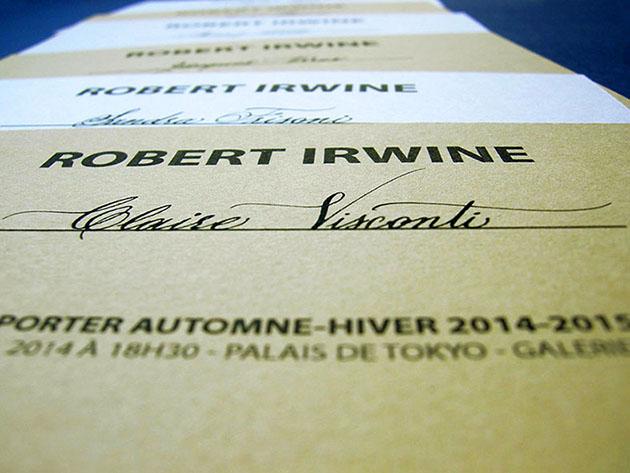 ROBERT IRWINE
ROBERT IRWINE
Sandra Frisoni
ROBERT IRWINE
Claire Visconti
PORTER AUTOMNE-HIVER 2014-2015
2014 À 18H30 - PALAIS DE TOKYO - GALERIE